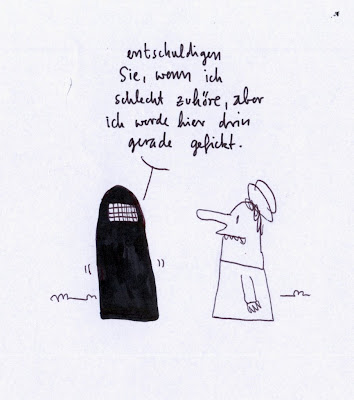 entschuldigen
Sie, wenn ich
schlecht zuhöre, aber
ich werde hier drin
gerade gefickt.